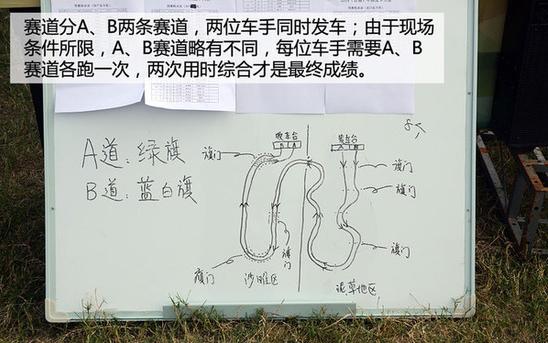 赛道分A、B两条赛道，两位车手同时发车；由于现场
条件所限，A、B赛道略有不同，每位车手需要A、B
赛道各跑一次，两次用时综合才是最终成绩。
A道：绿旗
B道：蓝白旗
收车台
B A
发车台
A B
旗门
旗门
旗门
旗门
旗门
旗门
沙滩区
泥草地区